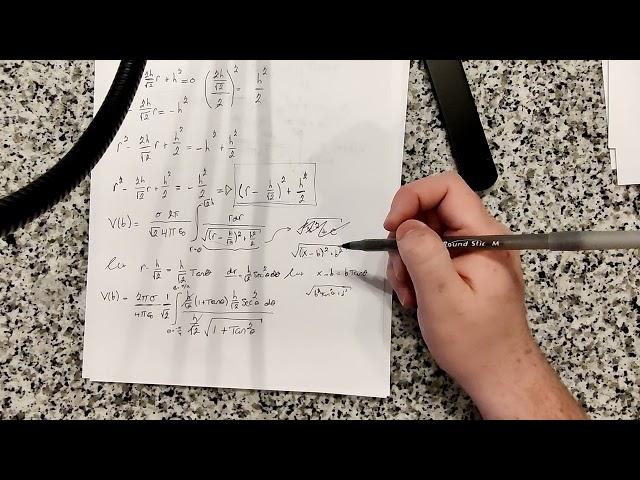 2h/√2 r + h² = 0 (2h/√2 / 2)² = h²/2
2h/√2 r = -h²
r² - 2h/√2 r + h²/2 = -h² + h²/2
r² - 2h/√2 r + h²/2 = -h²/2 ⇒ (r - h/√2)² + h²/2
V(b) = σ 2π / √2 4πε₀ ∫ r=0 √2h rdr / √((r - h/√2)² + h²/2)
√((x-b)² + b²
let r - h/√2 = h/√2 Tanθ dr = h/√2 Sec²θ dθ let x - b = b Tanθ
V(b) = 2πσ / 4πε₀ 1/√2 ∫ h/√2 (1 + Tanθ) h/√2 Sec²θ dθ / h/√2 √(1 + Tan²θ)
Round Stic M